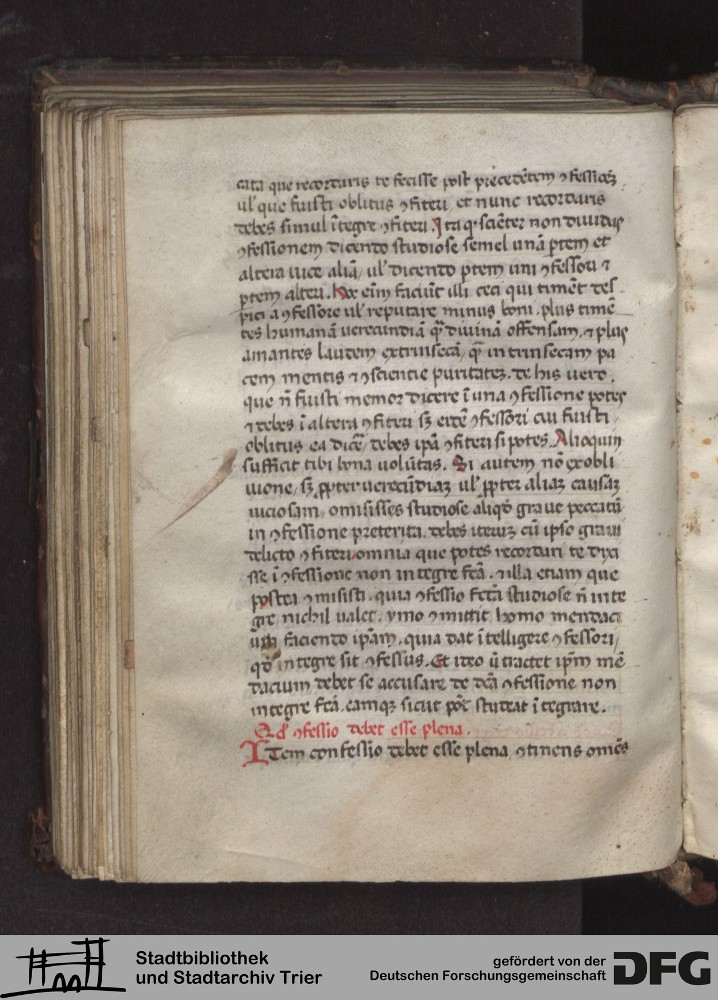 cata que recordaris te fecisse post precedētem ꝯfessiōeꝫ
ul' que fuisti oblitus ꝯfiteri, et nunc recordaris
debes simul ītegre ꝯfiteri. Ita qꝫ sciēter non diuidas
ꝯfessionem dicendo studiose semel unā ꝑtem et
altera uice aliā, ul' dicendo ꝑtem uni ꝯfessori ⁊
ꝑtem alteri. Hoc eīm faciūt illi ceci qui timēt des
pici a ꝯfessore ul' reputari minus boni. plus timē
tes humanā uerecundiā qꝫ̄ diuinā offensam, ⁊ plus
amantes laudem extrinsecā, qꝫ̄ intrinsecam pa
cem mentis ⁊ ꝯscientie puritateꝫ. de his uero,
que ñ fuisti memor dicere ī una ꝯfessione potes
⁊ debes ī altera ꝯfiteri sꝫ eidē ꝯfessori cui fuisti
oblitus ea dicē, debes ipā ꝯfiteri si potes. Alioquin
sufficit tibi bona uolūtas. Si autem nō ex obli
uione, sꝫ ꝓpter uerecūdiaꝫ ul' ꝓpter aliaꝫ causaꝫ
uiciosam, omisisses studiose aliqd' graue peccatū
in ꝯfessione preterita. debes iteruꝫ cū ipso graui
delicto ꝯfiteri omnia que potes recordari te dixi
sse ī ꝯfessione non integre fcā. ⁊ illa etiam que
postea ꝯmisisti. quia ꝯfessio fctā studiose ñ inte
gre nichil ualet. ymo ꝯmittit homo mendaci
um faciendo ipam. quia dat ītelligere ꝯfessori,
qd' integre sit ꝯfessus. Et ideo ū tractet ipm mē
dacium debet se accusare de dcā ꝯfessione non
integre fctā. eamqꝫ sicut pōt studeat ītegrare.
Qd' ꝯfessio debet esse plena.
ITem confessio debet esse plena, ꝯtinens omēs
Stadtbibliothek
und Stadtarchiv Trier
gefördert von der
Deutschen Forschungsgemeinschaft
DFG